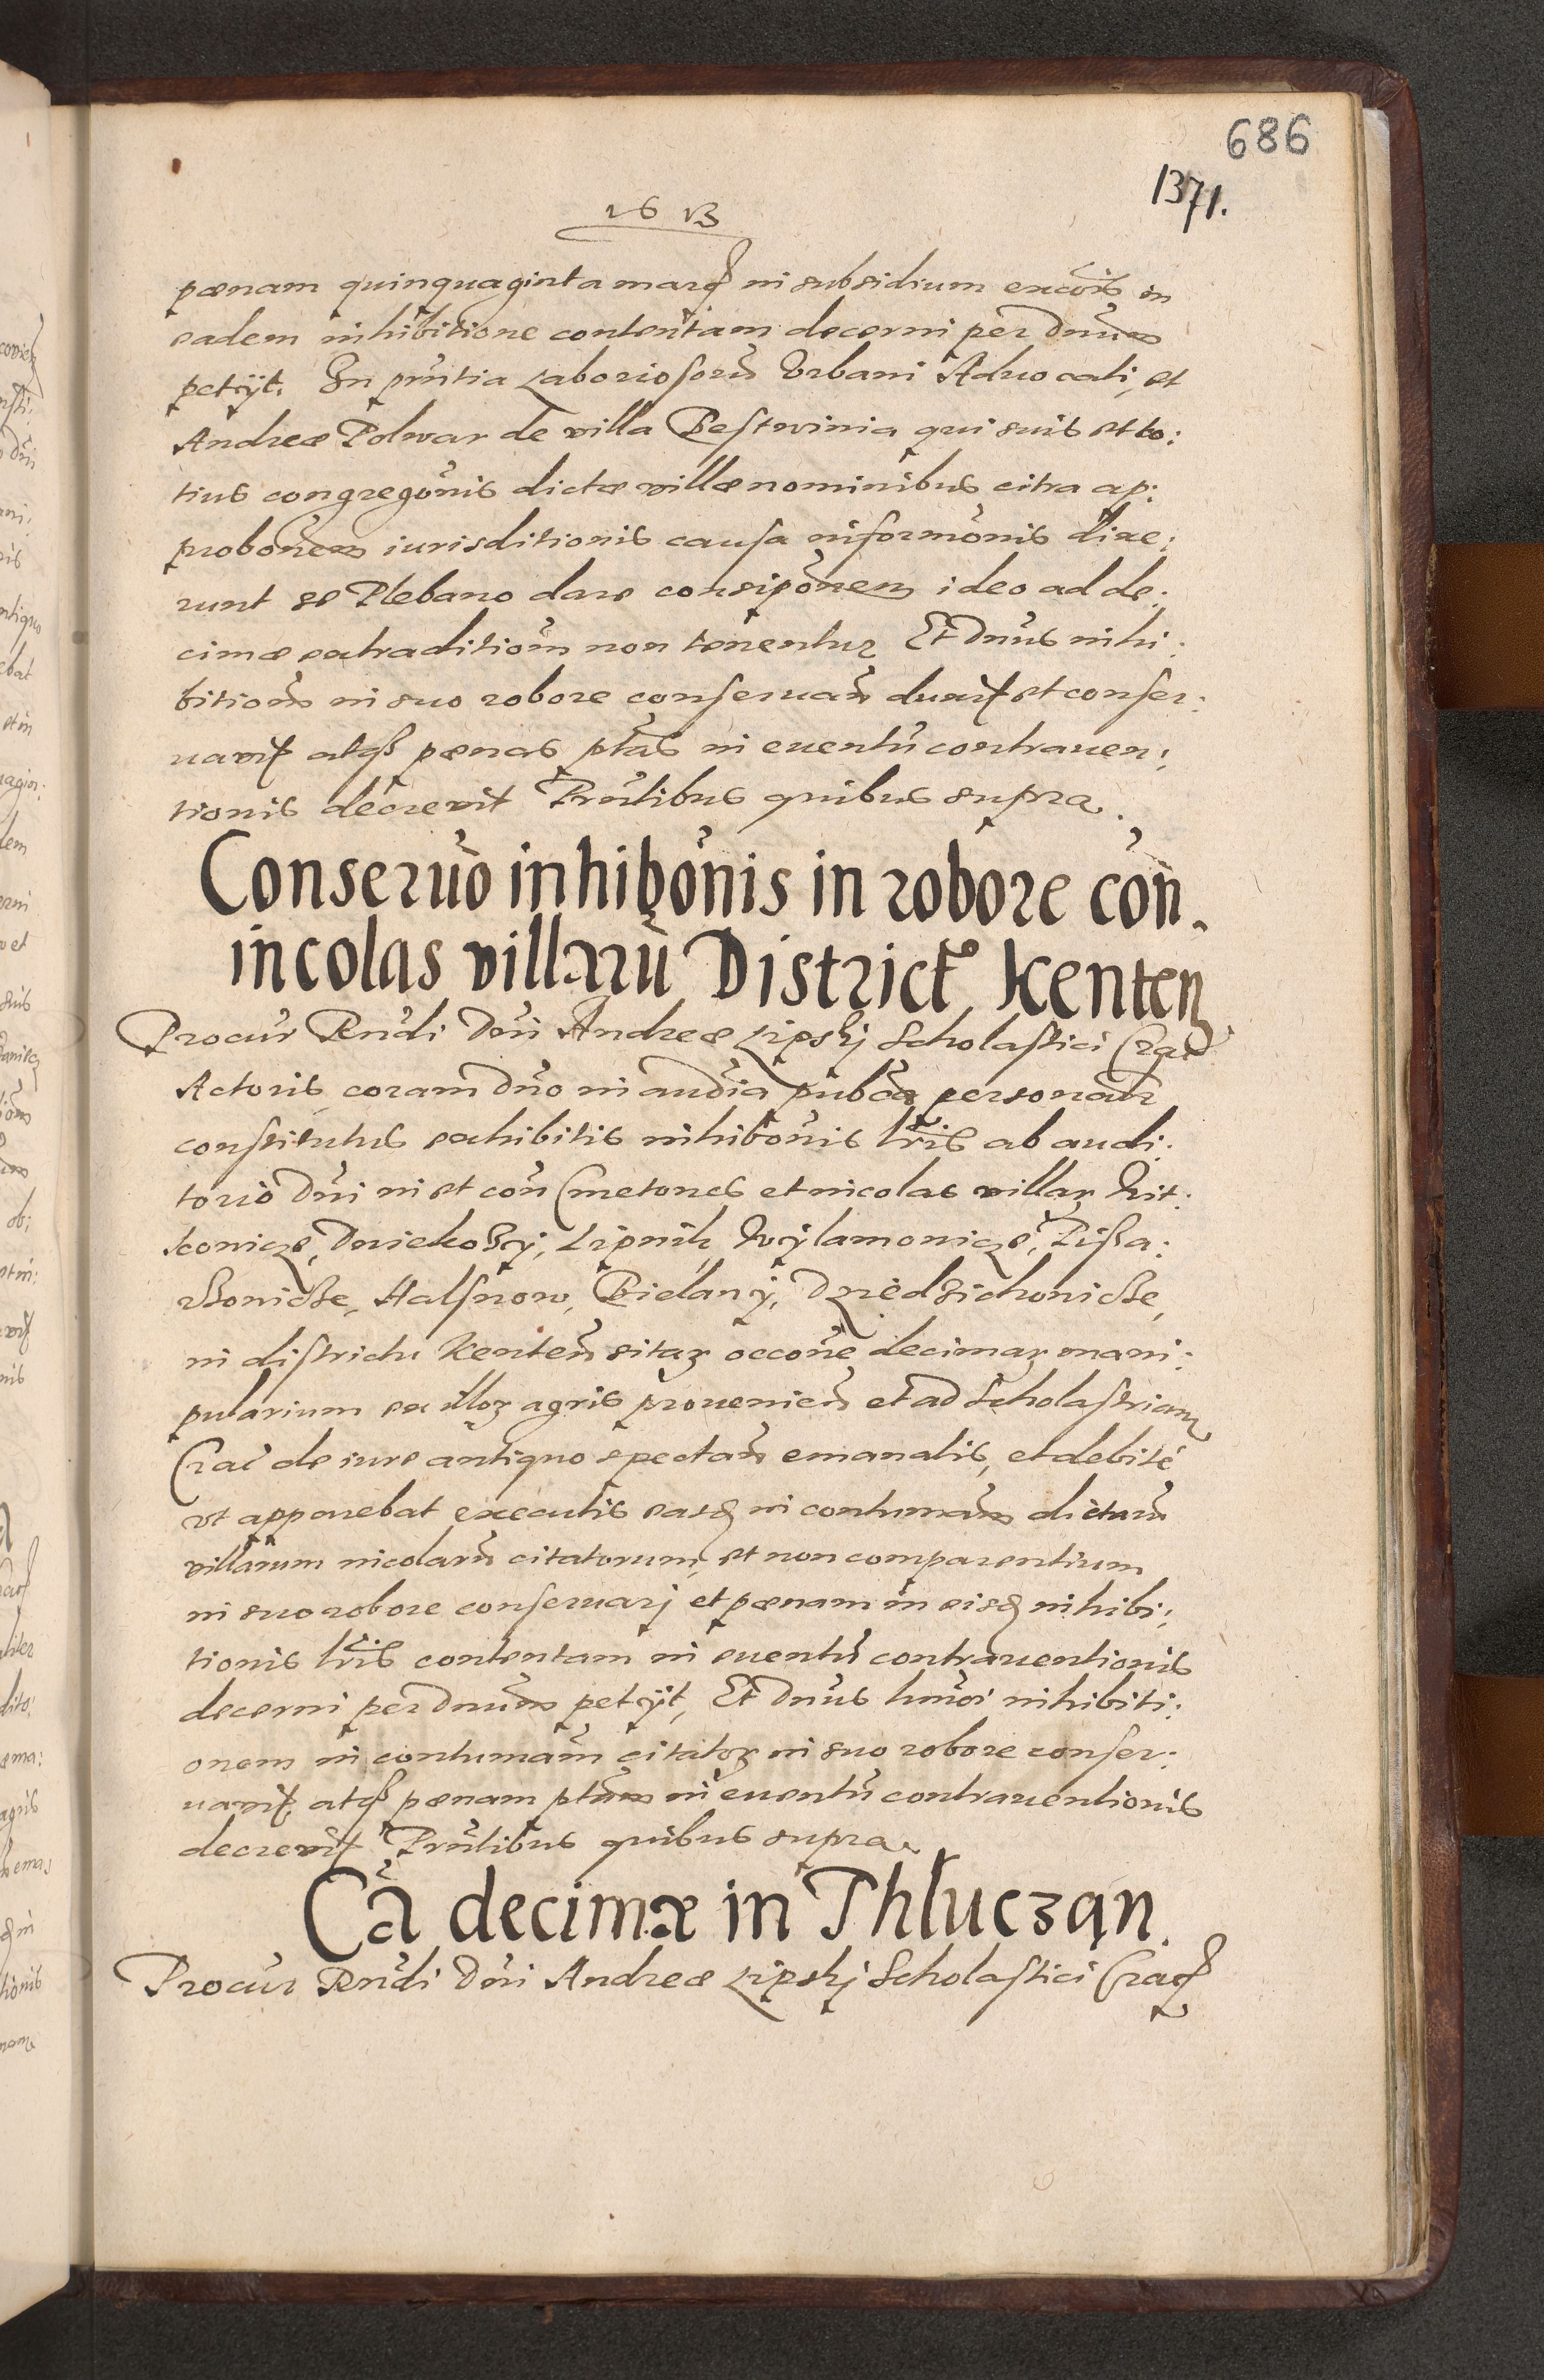 686
1371.
1613
pœnam quinquaginta marc̃ in subsidium excõis in
eadem inhibitione contentam decerni per Dnũm
petijt. In pñtia Laboriosorũ Urbani Aduocati, et
Andreæ Polwar de villa Bestwinia qui suis et to:
tius congregõnis dictæ villæ nominibus citra ap:
probõnem iurisditionis causa informõnis dixe:
runt se Plebano dare consipõnem ideo ad de:
cimæ extraditiom̃ non tenentur Et Dnũs inhi:
bitiom̃ in suo robore conseruan̄ duxit et conser:
uauit atq₃ pœnas pt̃as in euentũ contrauen:
tionis decreuit Pr̃ntibus quibus supra.
Conseruõ inhibõnis in robore cõn.
incolas villarũ District⁹ Kenteñ
Procur̃ Rñdi Dñi Andreæ Lipskj Scholastici Crac̃
Actoris coram Dño in aud̃ia pub̃ca personalr̃
constitutus exhibitis inhibõnis lr̃is ab audi:
torio Dñi in et cõn Cmetones et incolas villar̃ Wit:
konicze, Dwiekoszÿ, Lipnik, Wÿlamonicze, Pissa:
rzowicze, Halsnow, Bielanÿ, Dziedzichowicze,
in districtu Kenteñ sitar̃ occõne decimar̃ mani:
pularium ex illor̃ agris prouenieñ et ad Scholastriam
Crac̃ de iure antiquo spectañ emanatis, et debité
vt apparebat executis easq₃ in contumam̃ dictarũ
villarum incolarũ citatorum, et non comparentium
in suo robore conseruarj et pœnam in eisd̃ inhibi:
tionis lr̃is contentam in euentũ contrauentionis
decerni per Dnũm petijt, Et Dnũs hmõi inhibiti:
onem in contumam̃ citator̃ in suo robore conser:
uauit, atq₃ pœnam pt̃am in euentũ contrauentionis
decreuit Pr̃ntibus quibus supra.
Cã decimæ in Thłucząn.
Procur̃ Rñdi Dñi Andreæ Lipskj Scholastici Crac̃